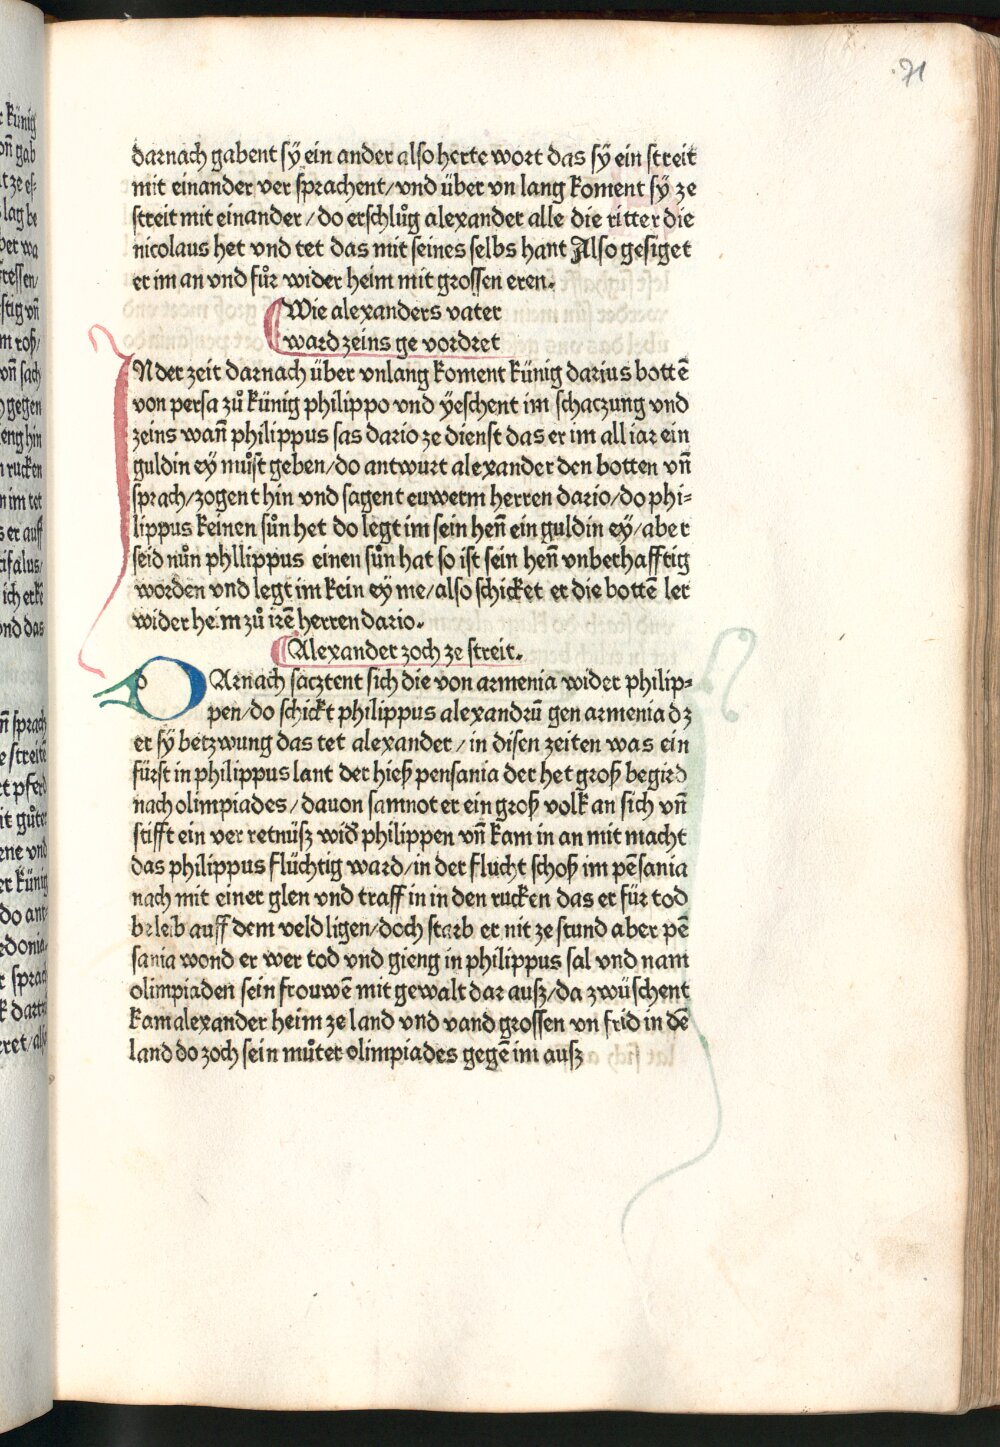 71
darnach gabent sÿ ein ander also herte wort das sÿ ein streit
mit einander ver sprachent/vnd über vn lang koment sÿ ze
streit mit einander/do erschlůg alexander alle die ritter die
nicolaus het vnd tet das mit seines selbs hant Also gesiget
er im an vnd fůr wider heim mit grossen eren.
Wie alexanders vater
ward zeins ge vordret
INder zeit darnach über vnlang koment künig darius bottē
von persa zů künig philippo vnd ÿeschent im schaczung vnd
zeins wann̄ philippus sas dario ze dienst das er im all iar ein
guldin eÿ můst geben/do antwurt alexander den botten vn̄
sprach/zogent hin vnd sagent euwerm herren dario/do phi-
lippus keinen sůn het do legt im sein henn̄ ein guldin eÿ/aber
seid nůn phllippus einen sůn hat so ist sein henn̄ vnberhafftig
worden vnd legt im kein eÿ me/also schicket er die bottē ler
wider heim zů irē herren dario.
Alexander zoch ze streit.
DArnach sacztent sich die von armenia wider philip-
pen/do schickt philippus alexandrū gen armenia dz
er sÿ betzwung das tet alexander/in disen zeiten was ein
fürst in philippus lant der hieß pensania der het groß begird
nach olimpiades/dauon samnot er ein groß volk an sich vn̄
stifft ein ver retnüsz wid' philippen vn̄ kam in an mit macht
das philippus flüchtig ward/in der flucht schoß im pēsania
nach mit einer glen vnd traff in in den rucken das er für tod
beleib auff dem veld ligen/doch starb er nit ze stund aber pē
sania wond er wer tod vnd gieng in philippus sal vnd nam
olimpiaden sein frouwē mit gewalt dar ausz/da zwüschent
kam alexander heim ze land vnd vand grossen vn frid in dē
land do zoch sein můter olimpiades gegē im ausz